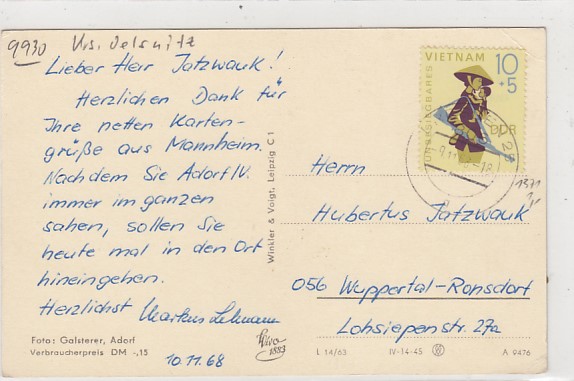 9930 Krs. Oelsnitz
Lieber Herr Tatzwauk!
Herzlichen Dank für
Ihre netten Karten-
grüße aus Mannheim.
Nachdem Sie Adorf IV.
immer im ganzen
sahen, sollen Sie
heute mal in den Ort
hineingehen.
Herzlichst Markus Lehmann
Foto: Galsterer, Adorf
Verbraucherpreis DM -,15
10.11.68
Winkler & Voigt, Leipzig C 1
1883
UNBESIEGBARES
VIETNAM
10
+5
DDR
1371
Herrn
Hubertus Tatzwauk
056 Wuppertal-Ronsdorf
Lohsiepenstr. 27a
L 14/63 IV-14-45 A 9476